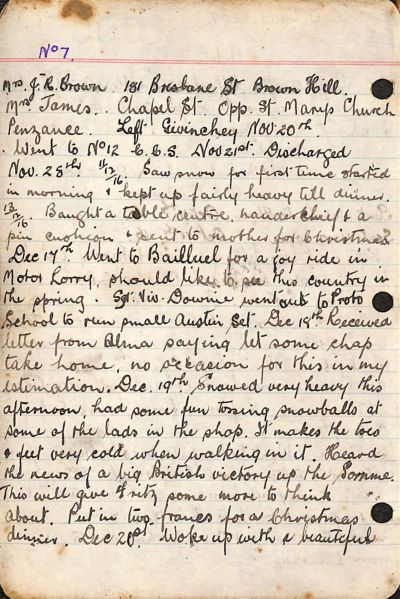 No 7.
Mrs. J. R. Brown. 181 Brisbane St Brown Hill.
Mrs James.. Chapel St. Opp. St. Marys Church
Penzance. Left Givinchey Nov 20th.
. Went to No 12 C.C.S. Nov 21st. Discharged
Nov. 28th. 11/12/16. Saw snow for first time started
in morning & kept up fairly heavy till dinner.
13/12/16. Baught a table centre, handerchief & a
pin cushion & sent to mother for Christmas.
Dec 17th Went to Bailluel for a joy ride in
Motor Lorry, should like to see this country in
the spring. Sgt. Viv. Downie went out to Proto
School to run small Austin Set. Dec 18th Received
letter from Alma saying let some chap
take home, no occasion for this in my
estimation. Dec. 19th. Snowed very heavy this
afternoon, had some fun tossing snowballs at
some of the lads in the shop. It makes the toes
& feet very cold when walking in it. Heard
the news of a big British victory up the Somme.
This will give Fritz some more to think
about. Put in two francs for a Christmas
dinner. Dec 20st Woke up with a beautiful